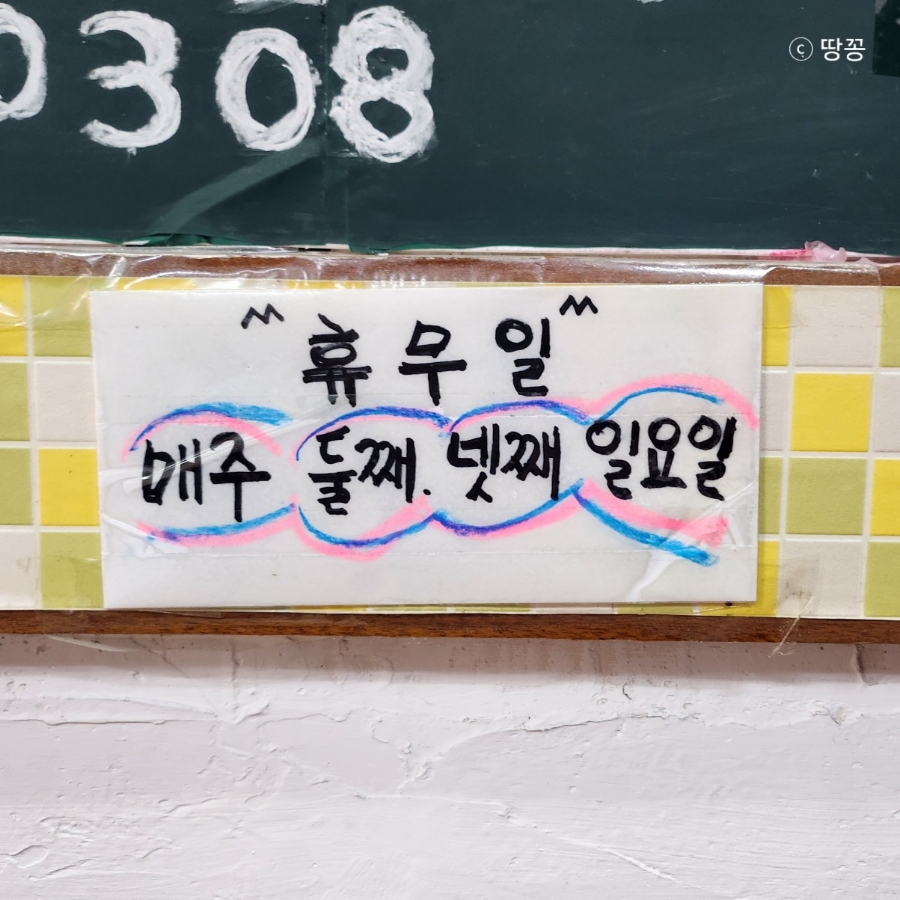 0308
ⓒ 땅꽁
"휴무일"
매주 둘째. 넷째 일요일